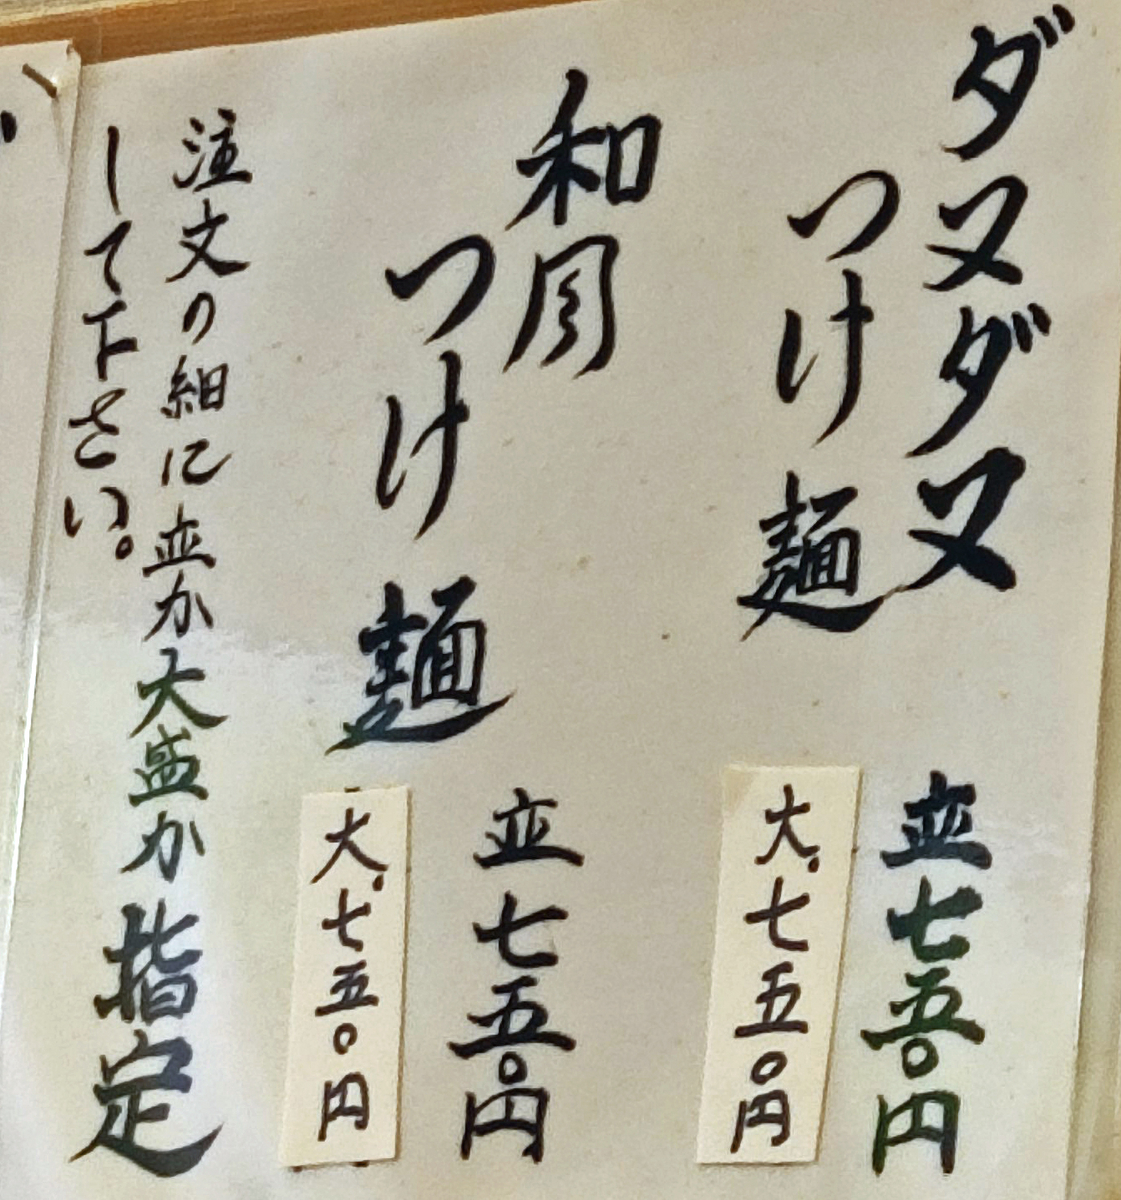 ダヌダヌ
つけ麺
並七五〇円
大、七五〇円
和風
つけ麺
並七五〇円
大、七五〇円
注文の細に並か大盛か指定
して下さい。